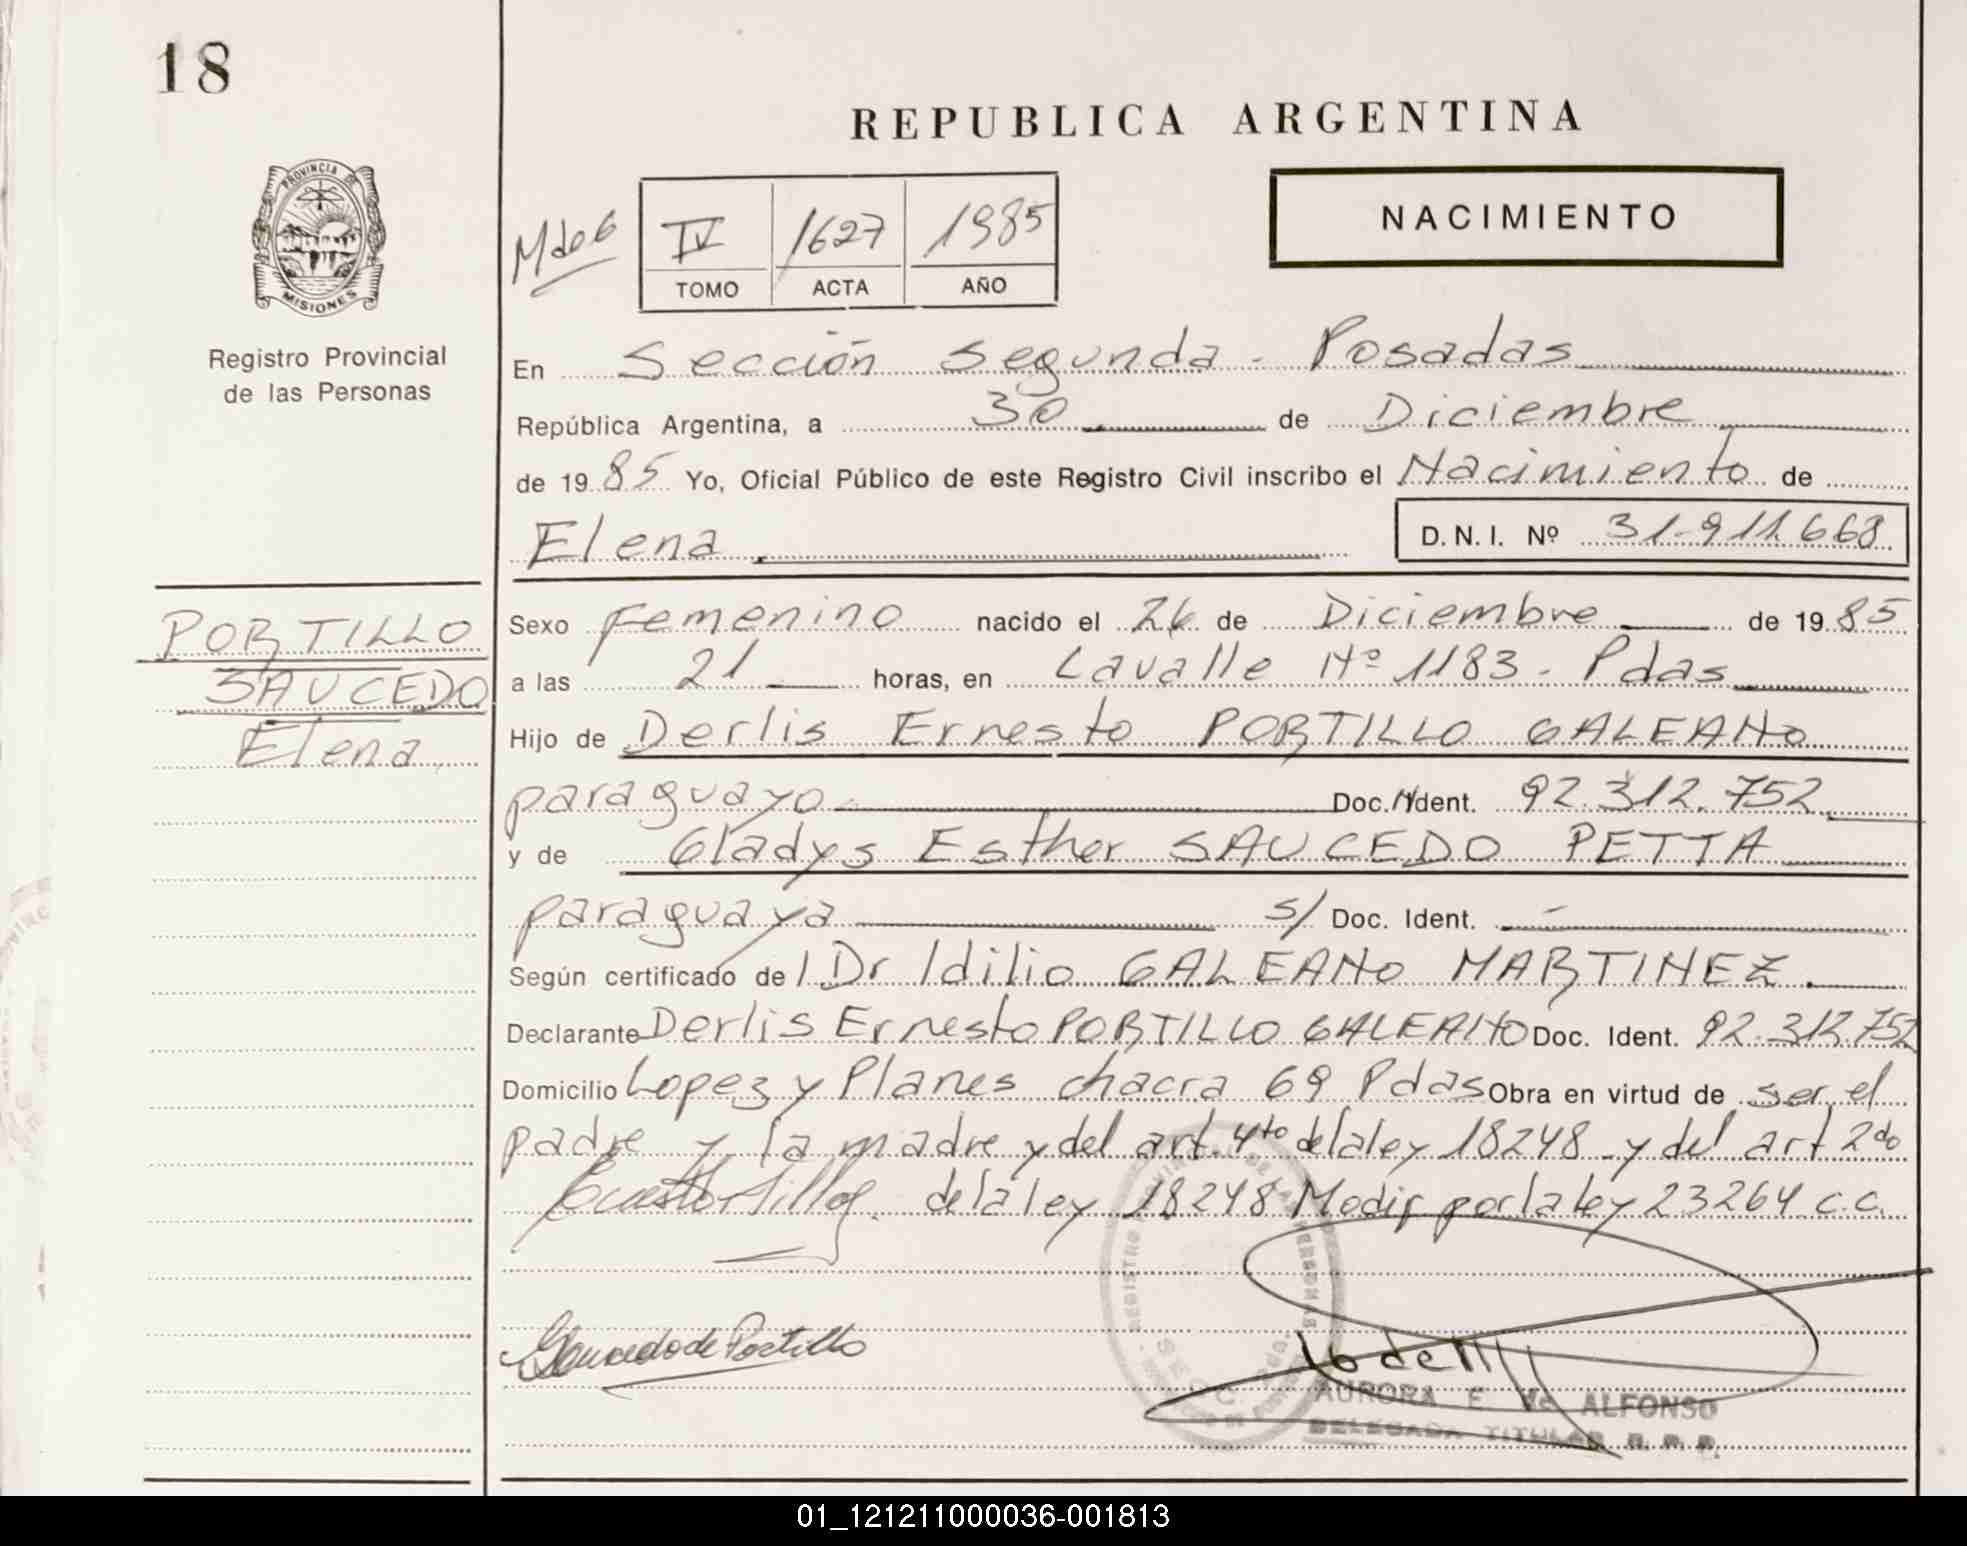 18
REPUBLICA ARGENTINA
PROVINCIA DE
MISIONES
Registro Provincial
de las Personas
IV 1627 1985
TOMO ACTA AÑO
NACIMIENTO
En Sección Segunda - Posadas
República Argentina, a 30 de Diciembre
de 1985 Yo, Oficial Público de este Registro Civil inscribo el Nacimiento de
Elena D.N.I. Nº 31.911.668
PORTILLO
SAUCEDO
Elena
Sexo Femenino nacido el 26 de Diciembre de 1985
a las 21 horas, en Lavalle Nº 1183 - Pdas
Hijo de Derlis Ernesto PORTILLO GALEANO
paraguayo Doc. Ident. 92.312.752
y de Gladys Esther SAUCEDO PETTA
paraguaya s/ Doc. Ident. -
Según certificado de Dr Idilio GALEANO MARTINEZ.
Declarante Derlis Ernesto PORTILLO GALEANO Doc. Ident. 92.312.752
Domicilio Lopez y Planes chacra 69 Pdas Obra en virtud de ser el
padre y la madre y del art. 4to de la ley 18248 - y del art 2do
de la ley 18248 Modif por la ley 23264 C.C.
REGISTRO PROVINCIAL DE LAS PERSONAS
SECC.
AURORA F. de ALFONSO
DELEGADA TITULAR R. P. P.
01_121211000036-001813